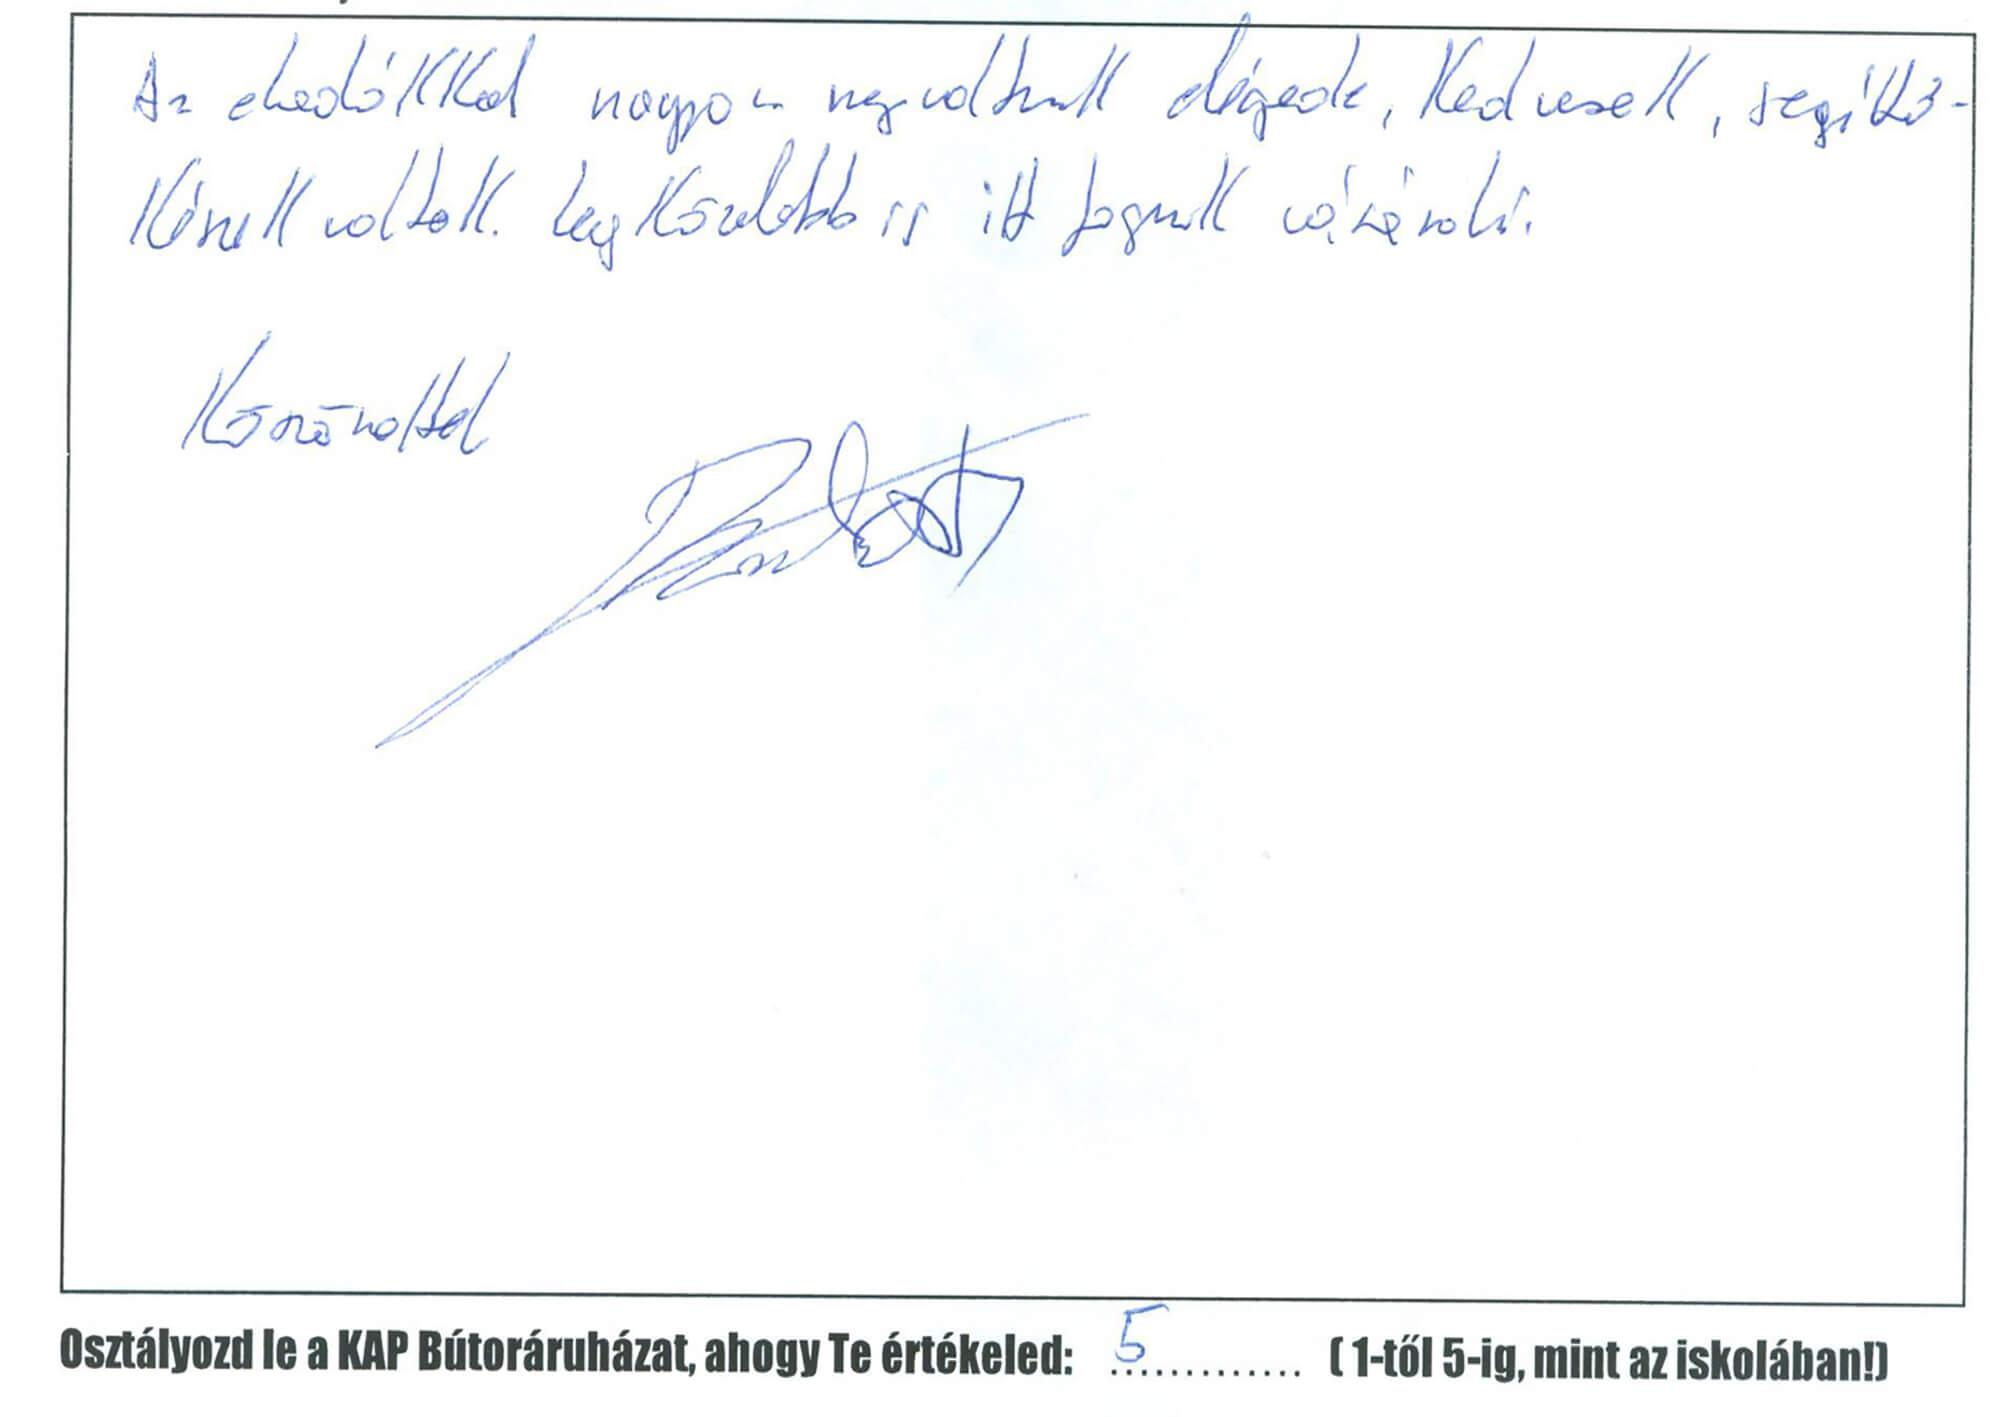 Az eladókkal nagyon meg voltunk elégedve, Kedvesek, segítő-
készek voltak. Legközelebb is itt fogunk vásárolni.
Köszönettel
Osztályozd le a KAP Bútoráruházat, ahogy Te értékeled: 5 ............. ( 1-től 5-ig, mint az iskolában!)